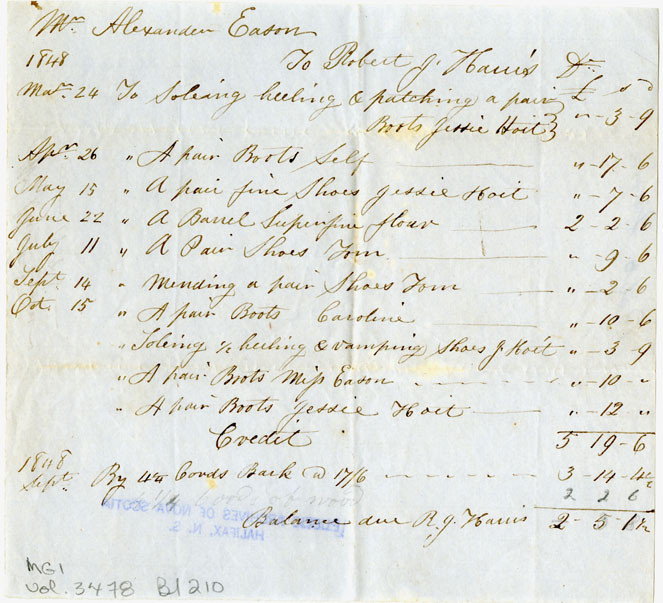 Mr Alexander Eason
1848 To Robert J. Harris Dr
£ s d
Mar. 24 To Soleing heeling & patching a pair
Boots Jessie Hoit } " - 3 - 9
Apr. 26 " A pair Boots Self " - 17 - 6
May 15 " A pair fine Shoes Jessie Hoit " - 7 - 6
June 22 " A Barrel Superfine flour 2 - 2 - 6
July 11 " A Pair Shoes Tom " - 9 - 6
Sept. 14 " Mending a pair Shoes Tom " - 2 - 6
Oct. 15 " A pair Boots Caroline " - 10 - 6
" Soleing ½ heeling & vamping Shoes J. Hoit " - 3 - 9
" A pair Boots Miss Eason " - 10 - "
" A pair Boots Jessie Hoit " - 12 "
Credit 5 19 - 6
1848
Sept. By Cords Bark @ 17/6 3 - 14 - 4½
Cords of wood 2 2 6
PUBLIC ARCHIVES OF NOVA SCOTIA
HALIFAX, N. S.
Balance due R. J. Harris 2 - 5 1½
MG1
Vol. 3478 B1 210